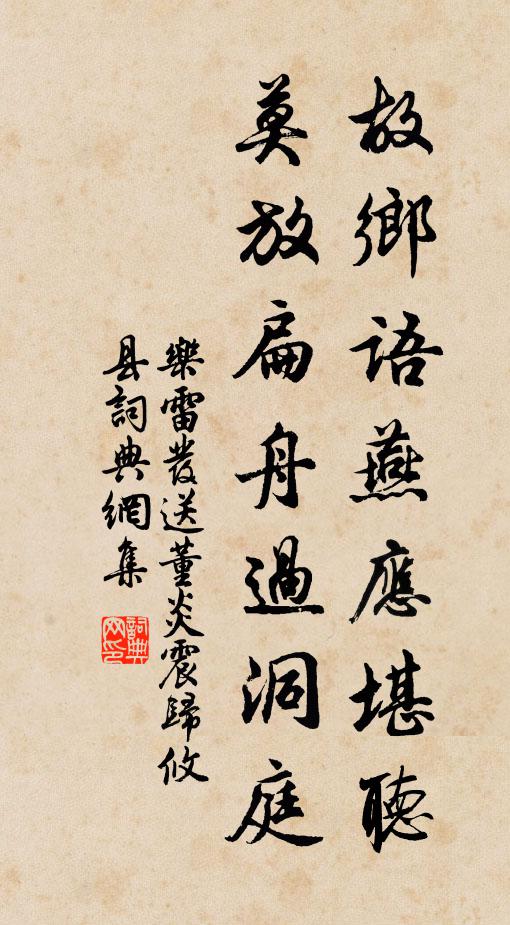 故鄉語燕應堪聽
莫放扁舟過洞庭
樂雷發送董炎震歸攸
县詞典網集
詞典
网印